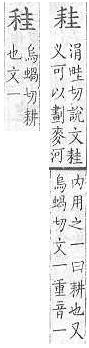 涓畦切說文
叉可以劃麥河
内用之一曰耕也又
烏蝸切文一重音一
烏蝸切耕
也文一